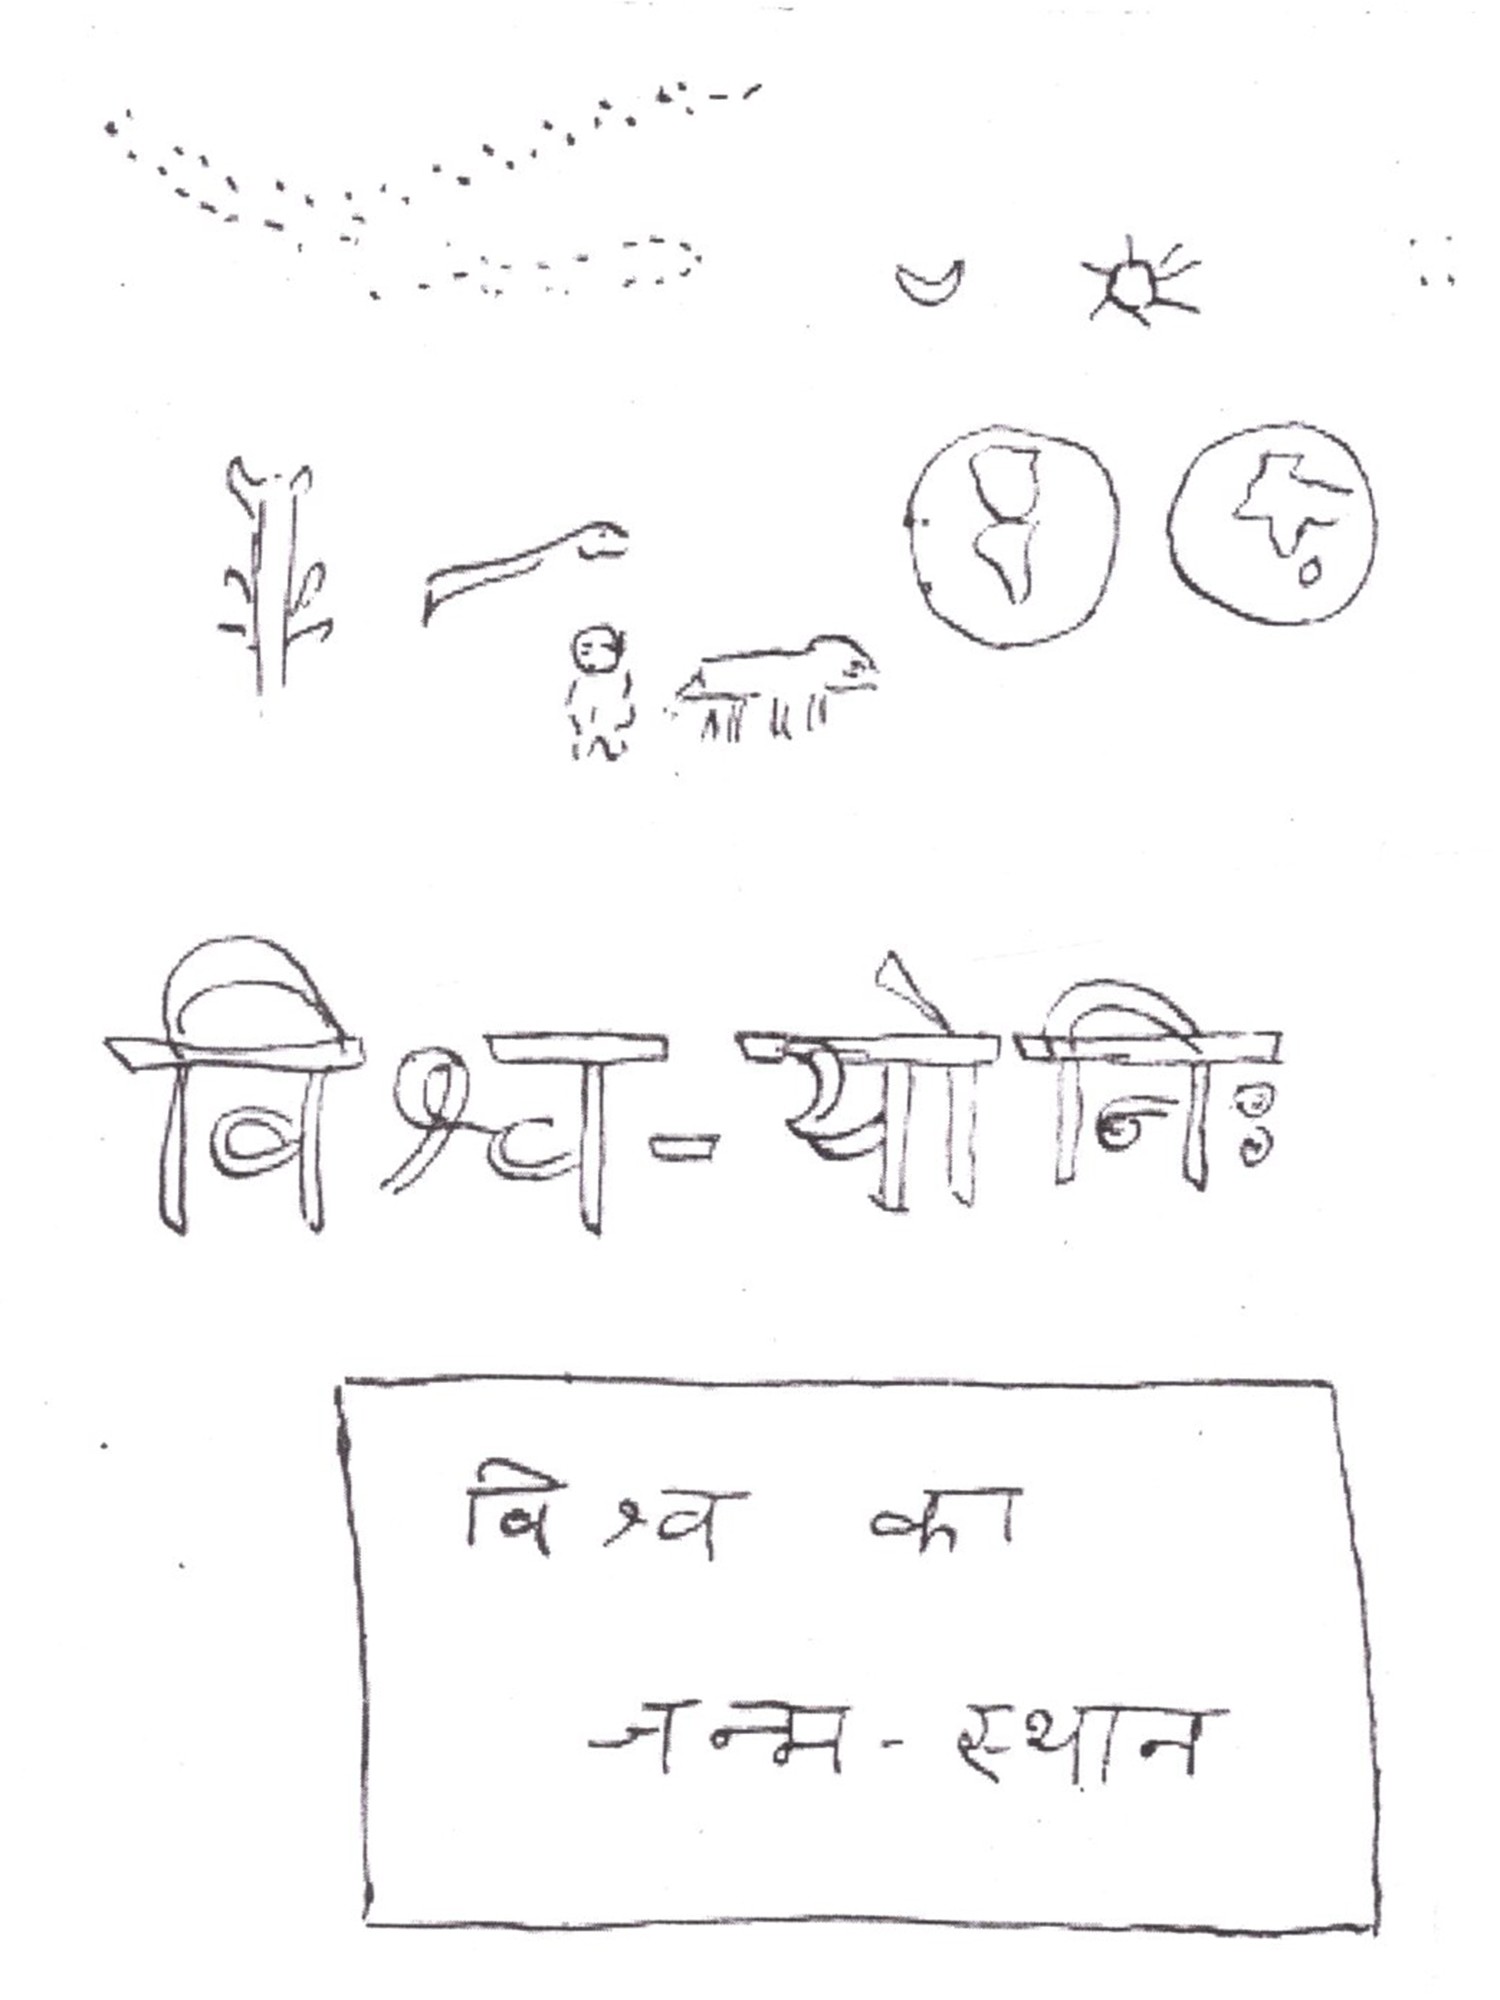 विश्व-योनिः
विश्व का
जन्म-स्थान